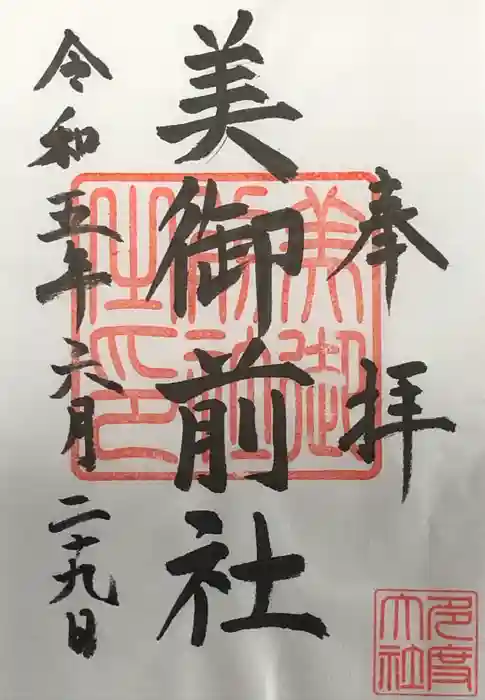 奉拝
美御前社
令和五年六月二十九日
美御前神社之印
多度大社